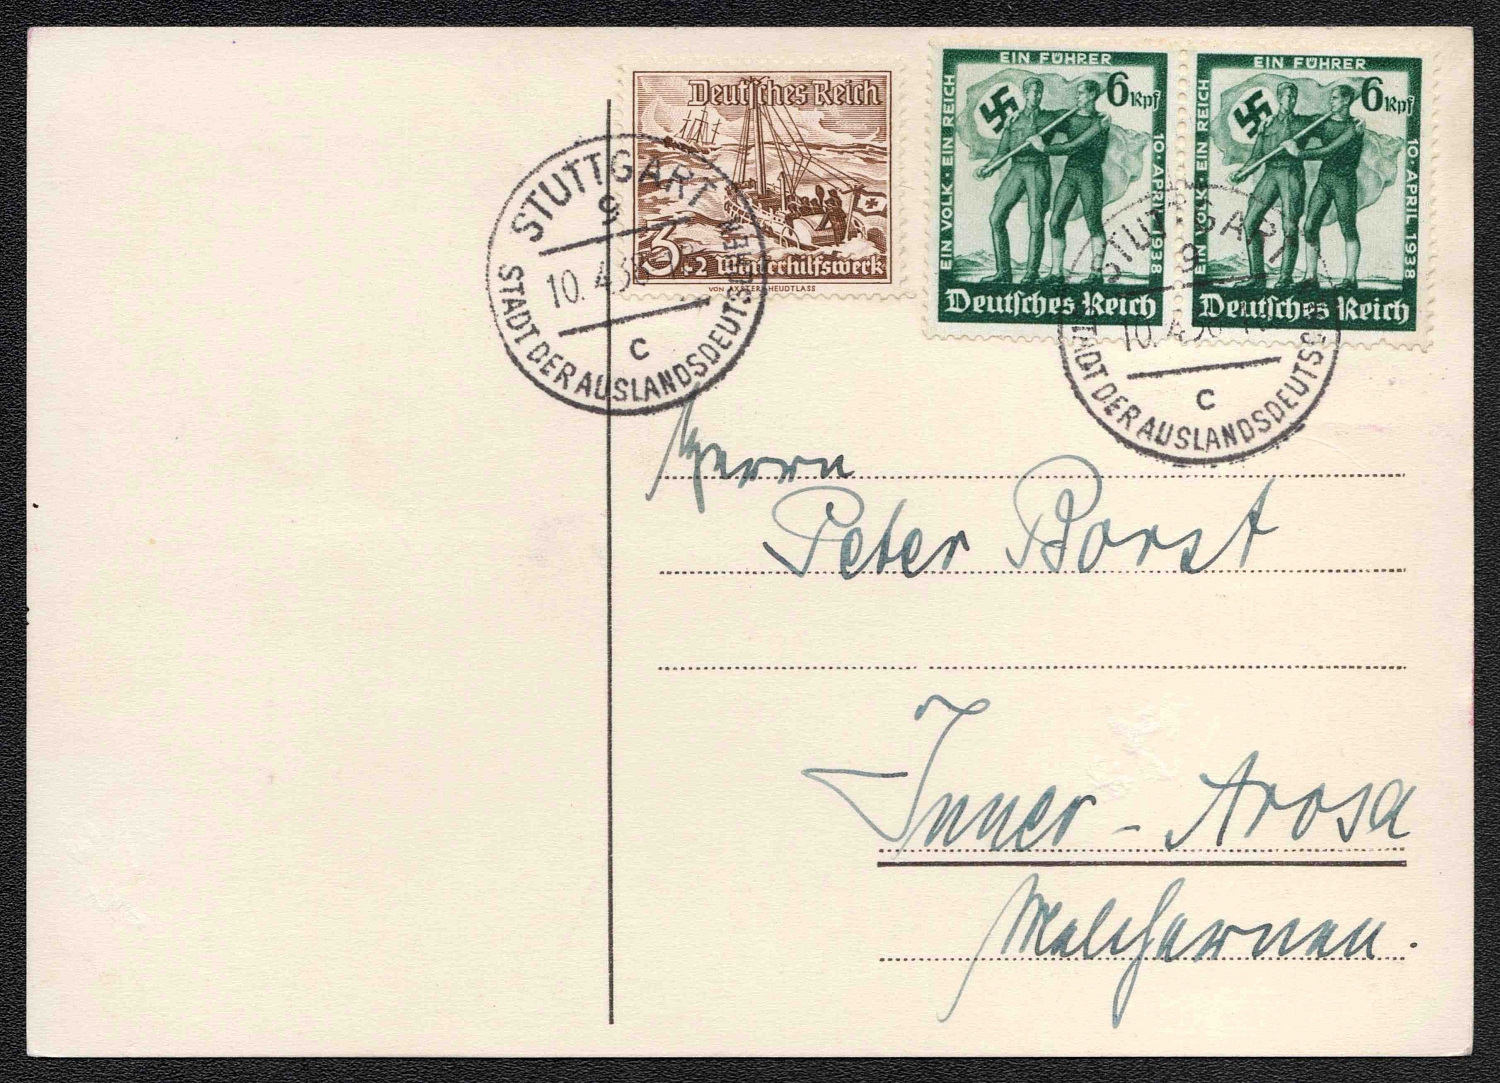 Deutsches Reich
3+2 Winterhilfswerk
VON AXSTER-HEUDTLASS
EIN VOLK · EIN REICH
EIN FÜHRER
6 Rpf
10. APRIL 1938
Deutsches Reich
EIN VOLK · EIN REICH
EIN FÜHRER
6 Rpf
10. APRIL 1938
Deutsches Reich
STUTTGART
9
10.4.38
c
STADT DER AUSLANDSDEUTSCHEN
STUTTGART
9
10.4.38
c
STADT DER AUSLANDSDEUTSCHEN
Herrn
Peter Borst
Inner-Arosa